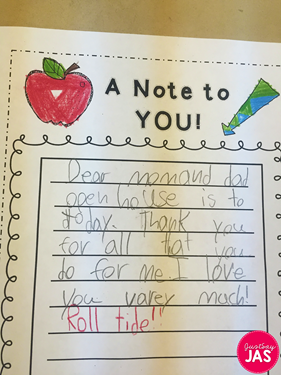 A Note to
YOU!
Dear mom and dad
open house is to
today. Thank you
for all that you
do for me. I love
you varey much!
Roll tide!!
Justbay
JAS